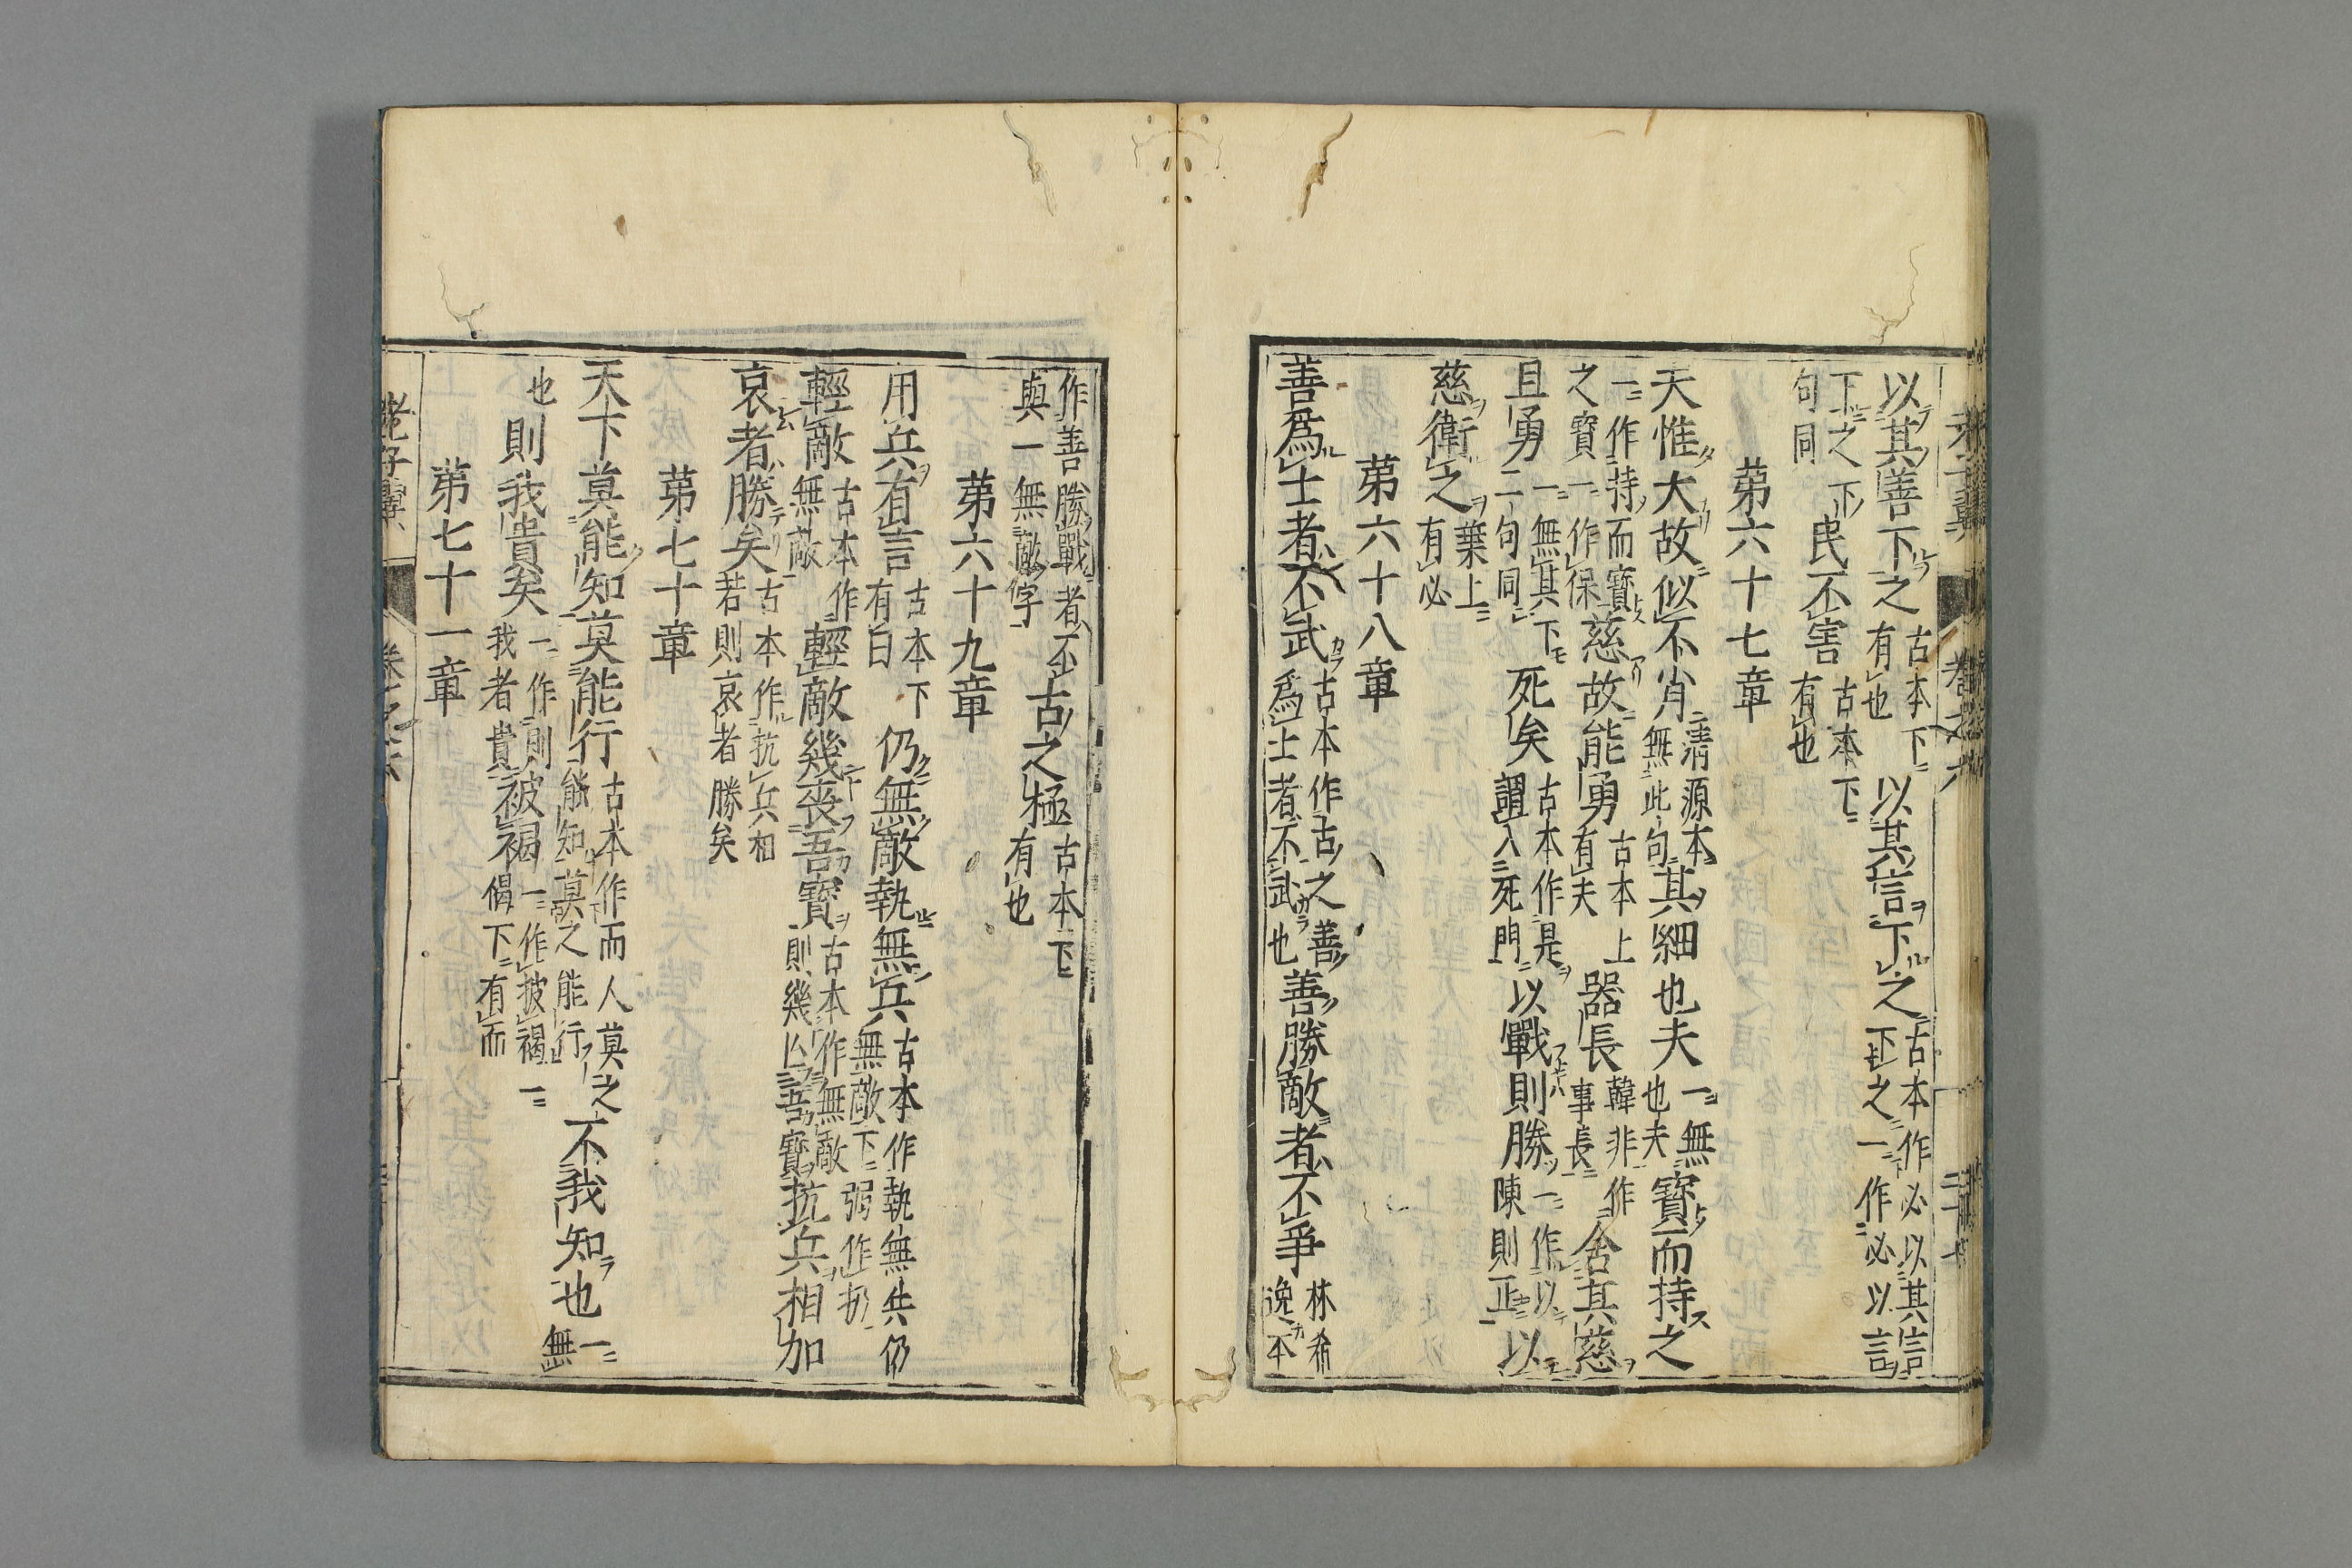 老子翼 卷之六
以其善下之古本下有也以其信下之古本作必以其信下之一作必以言
下之下句同民不害古本下有也
第六十七章
天惟大故似不肖清源本無此句其細也夫一無也夫寶而持之
一作持而寶之寶一作保慈故能勇古本上有夫器長韓非作事長舍其慈
且勇一無其下二句同死矣古本作是謂入死門以戰則勝一作以陳則正以
慈衛之葉上有必
第六十八章
善爲士者不武古本作古之善爲士者不武也善勝敵者不爭林希逸本
作善勝戰者不與一無敵字古之極古本下有也
第六十九章
用兵有言古本下有曰仍無敵執無兵古本作執無兵仍無敵下弼作扔
輕敵古本作無敵輕敵幾喪吾寶古本作無敵則幾亡吾寶抗兵相加
哀者勝矣古本作抗兵相若則哀者勝矣
第七十章
天下莫能知莫能行古本作而人莫之能知莫之能行不我知也一無
也則我貴矣一作則我者貴被褐一作披褐一偈下有而
第七十一章
老子翼 卷之六